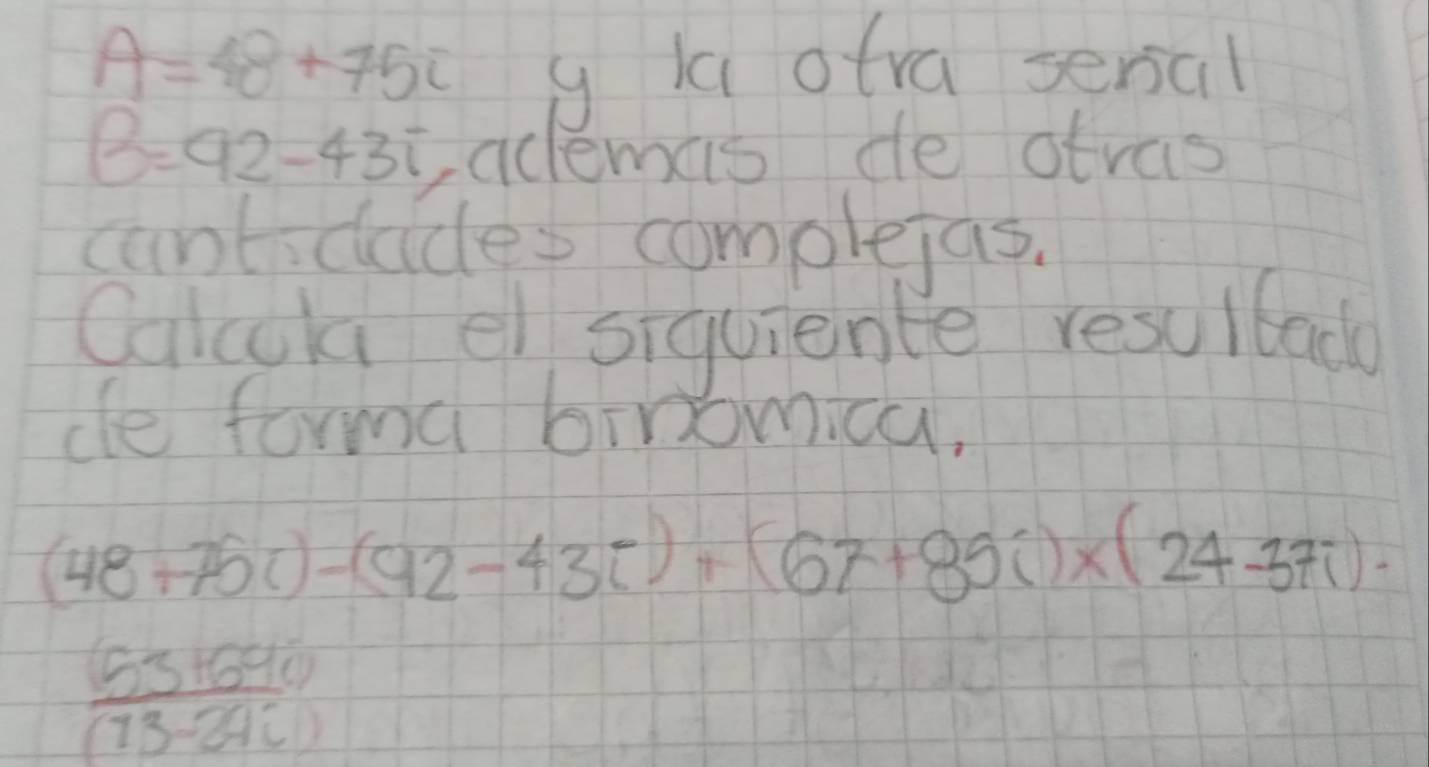 A=48+75i y la otra señal
B=92-43i, ademas de otras
cantidades complejas.
Calcula el siguiente resultado
de forma binomica.
(48+75i)-(92-43i)+(67+89i)×(24-37i)-
(53+69i)
(13-29i)